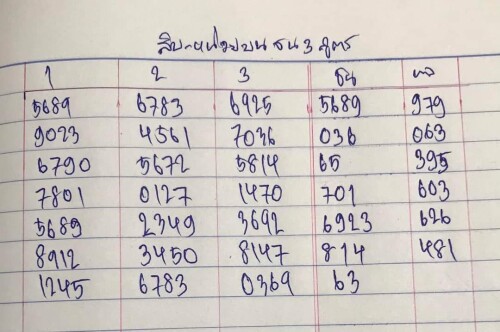 สิบ-หน่วยบน ชน 3 สูตร
1 2 3 ชน ผล
5689 6783 6925 5689 979
9023 4561 7036 036 063
6790 5672 5814 65 395
7801 0127 1470 701 603
5689 2349 3692 6923 626
8912 3450 8147 814 481
1245 6783 0369 63